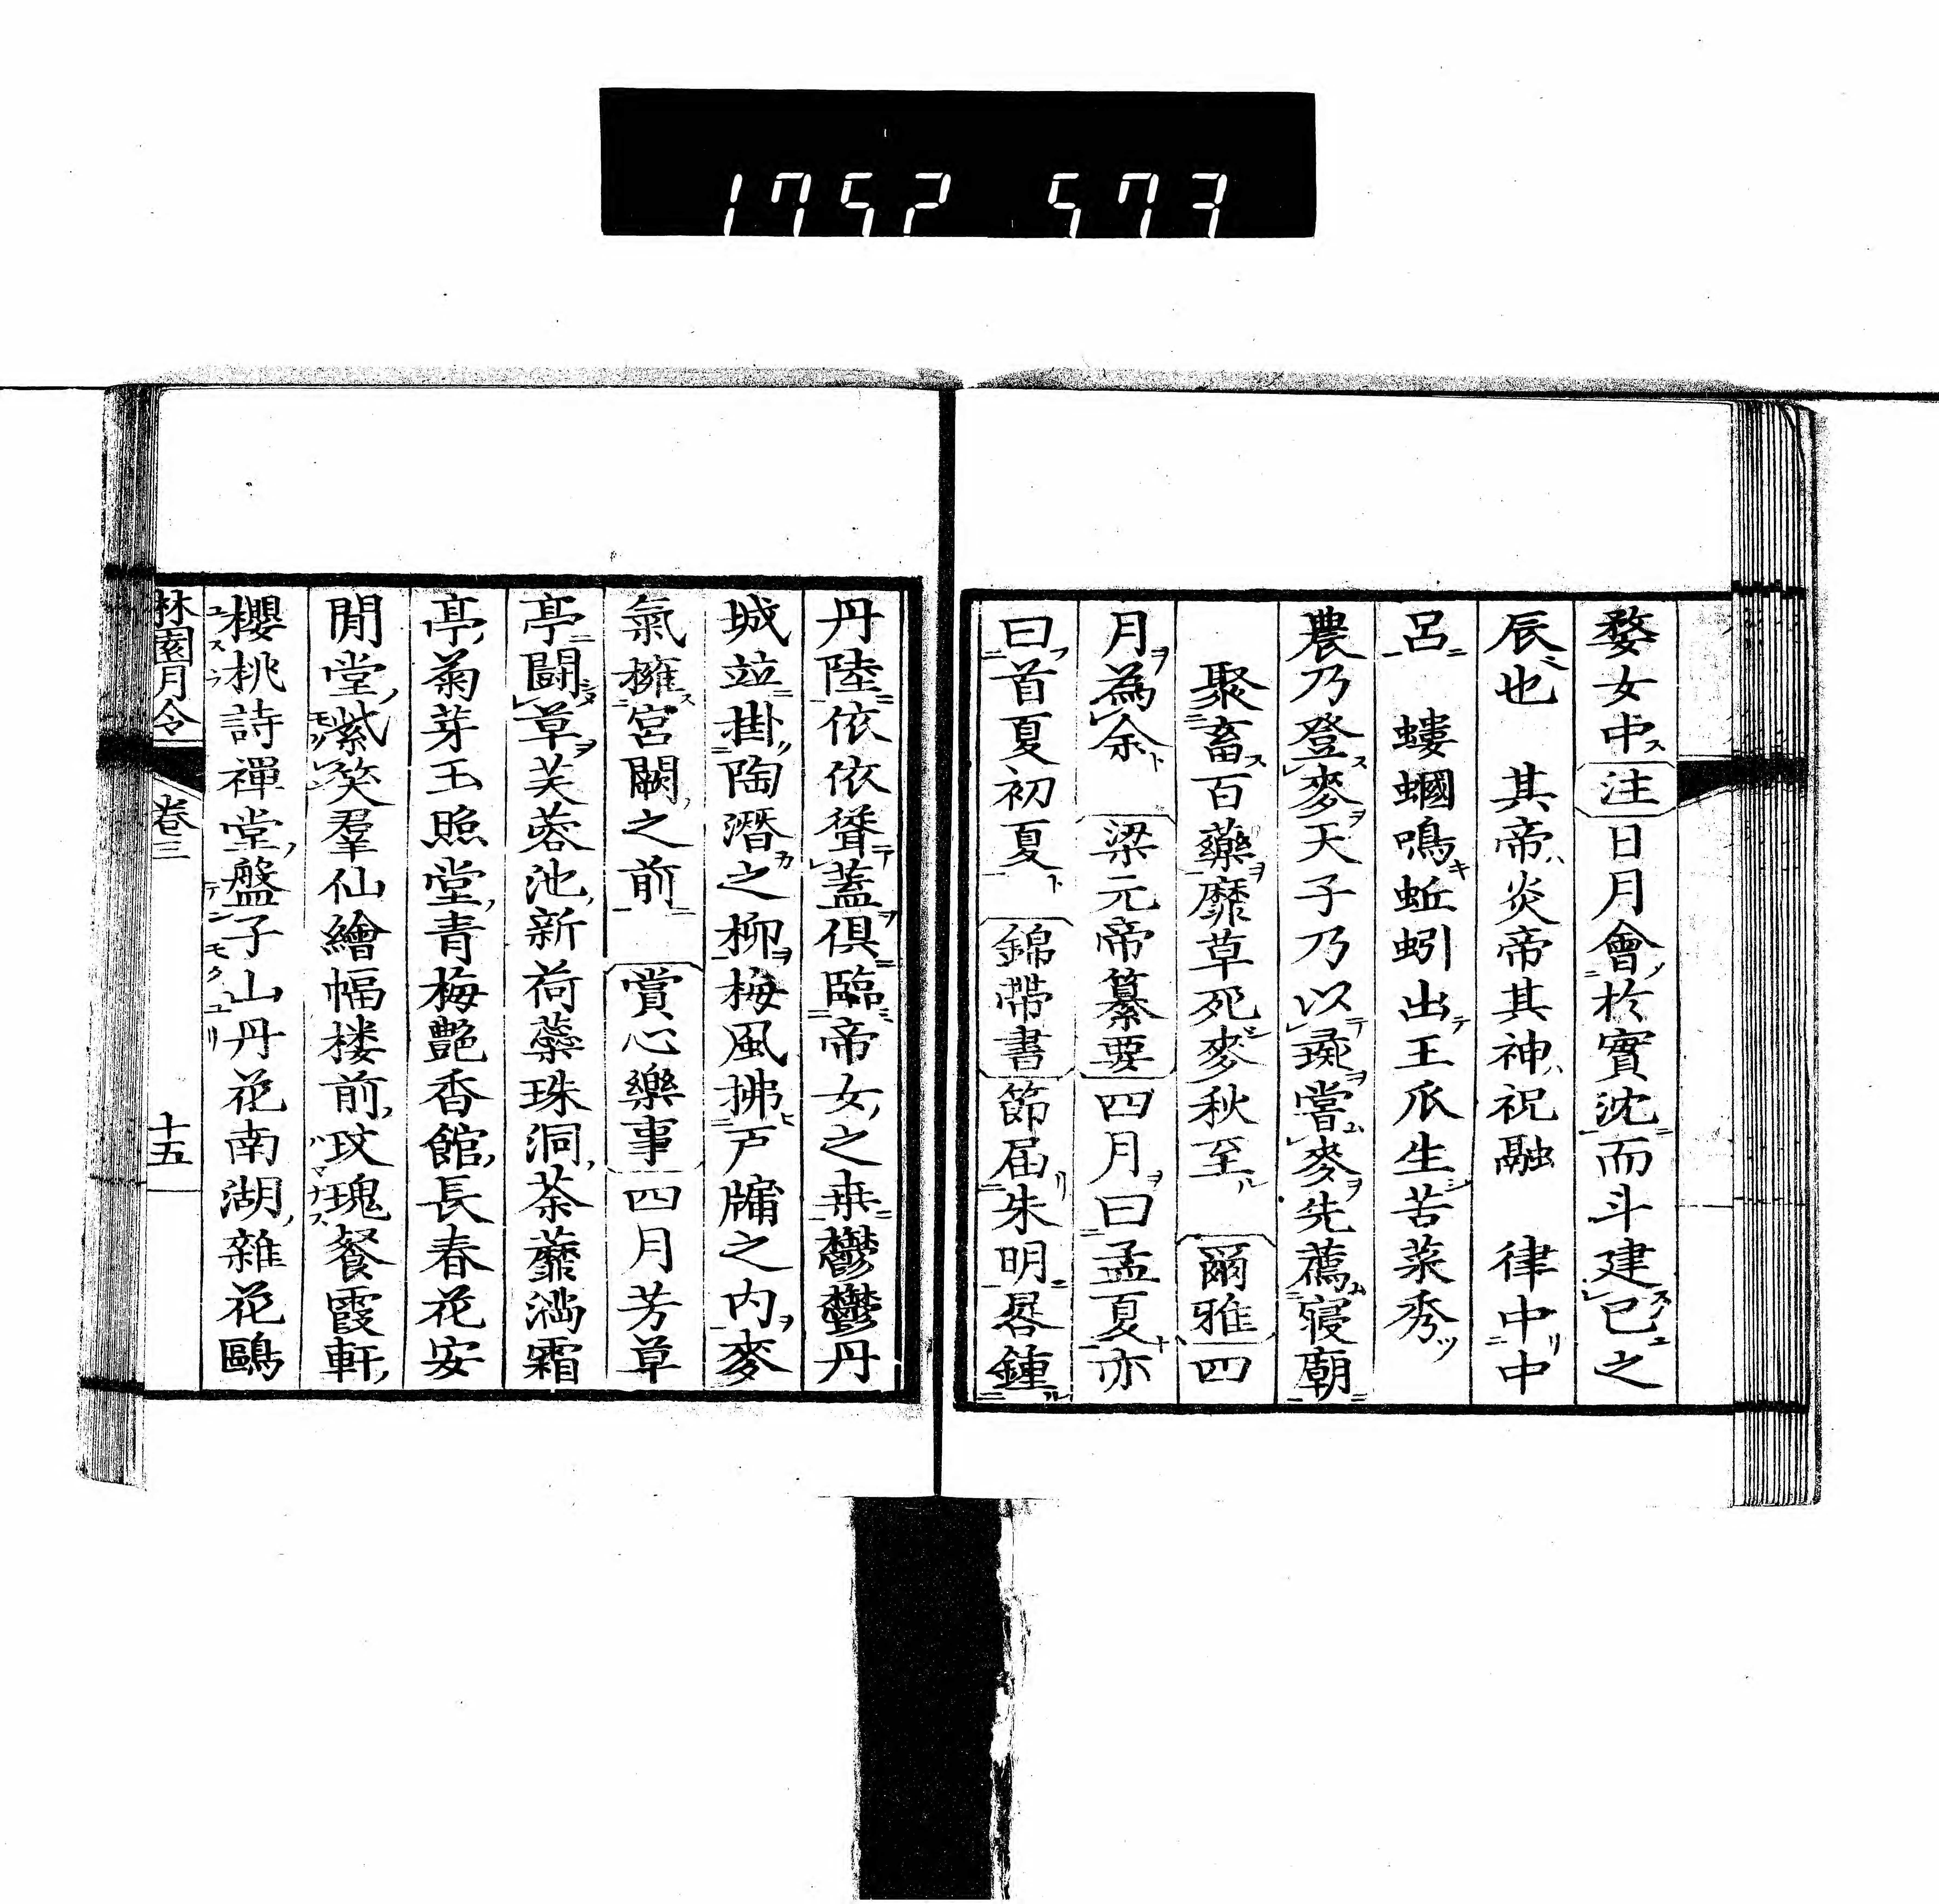 1752 573
婺女中注日月會於實沈而斗建巳之
辰也　其帝炎帝其神祝融　律中中
呂　螻蟈鳴蚯蚓出王瓜生苦菜秀
農乃登麥天子乃以彘嘗麥先薦寝廟
聚畜百藥靡草死麥秋至　爾雅四
月為余　梁元帝纂要四月曰孟夏亦
曰首夏初夏　錦帶書節届朱明晷鍾
丹陸依依聳蓋俱臨帝女之桒鬱鬱丹
城竝掛陶潛之柳梅風拂戸牖之内麥
氣擁宮闕之前　賞心樂事四月芳草
亭闘草芙蓉池新荷蘂珠洞荼蘼満霜
亭菊芽玉照堂青梅艶香館長春花安
閒堂紫笑羣仙繪幅楼前玫瑰餐霞軒
櫻桃詩禪堂盤子山丹花南湖雜花鷗
林園月令　卷三　十五